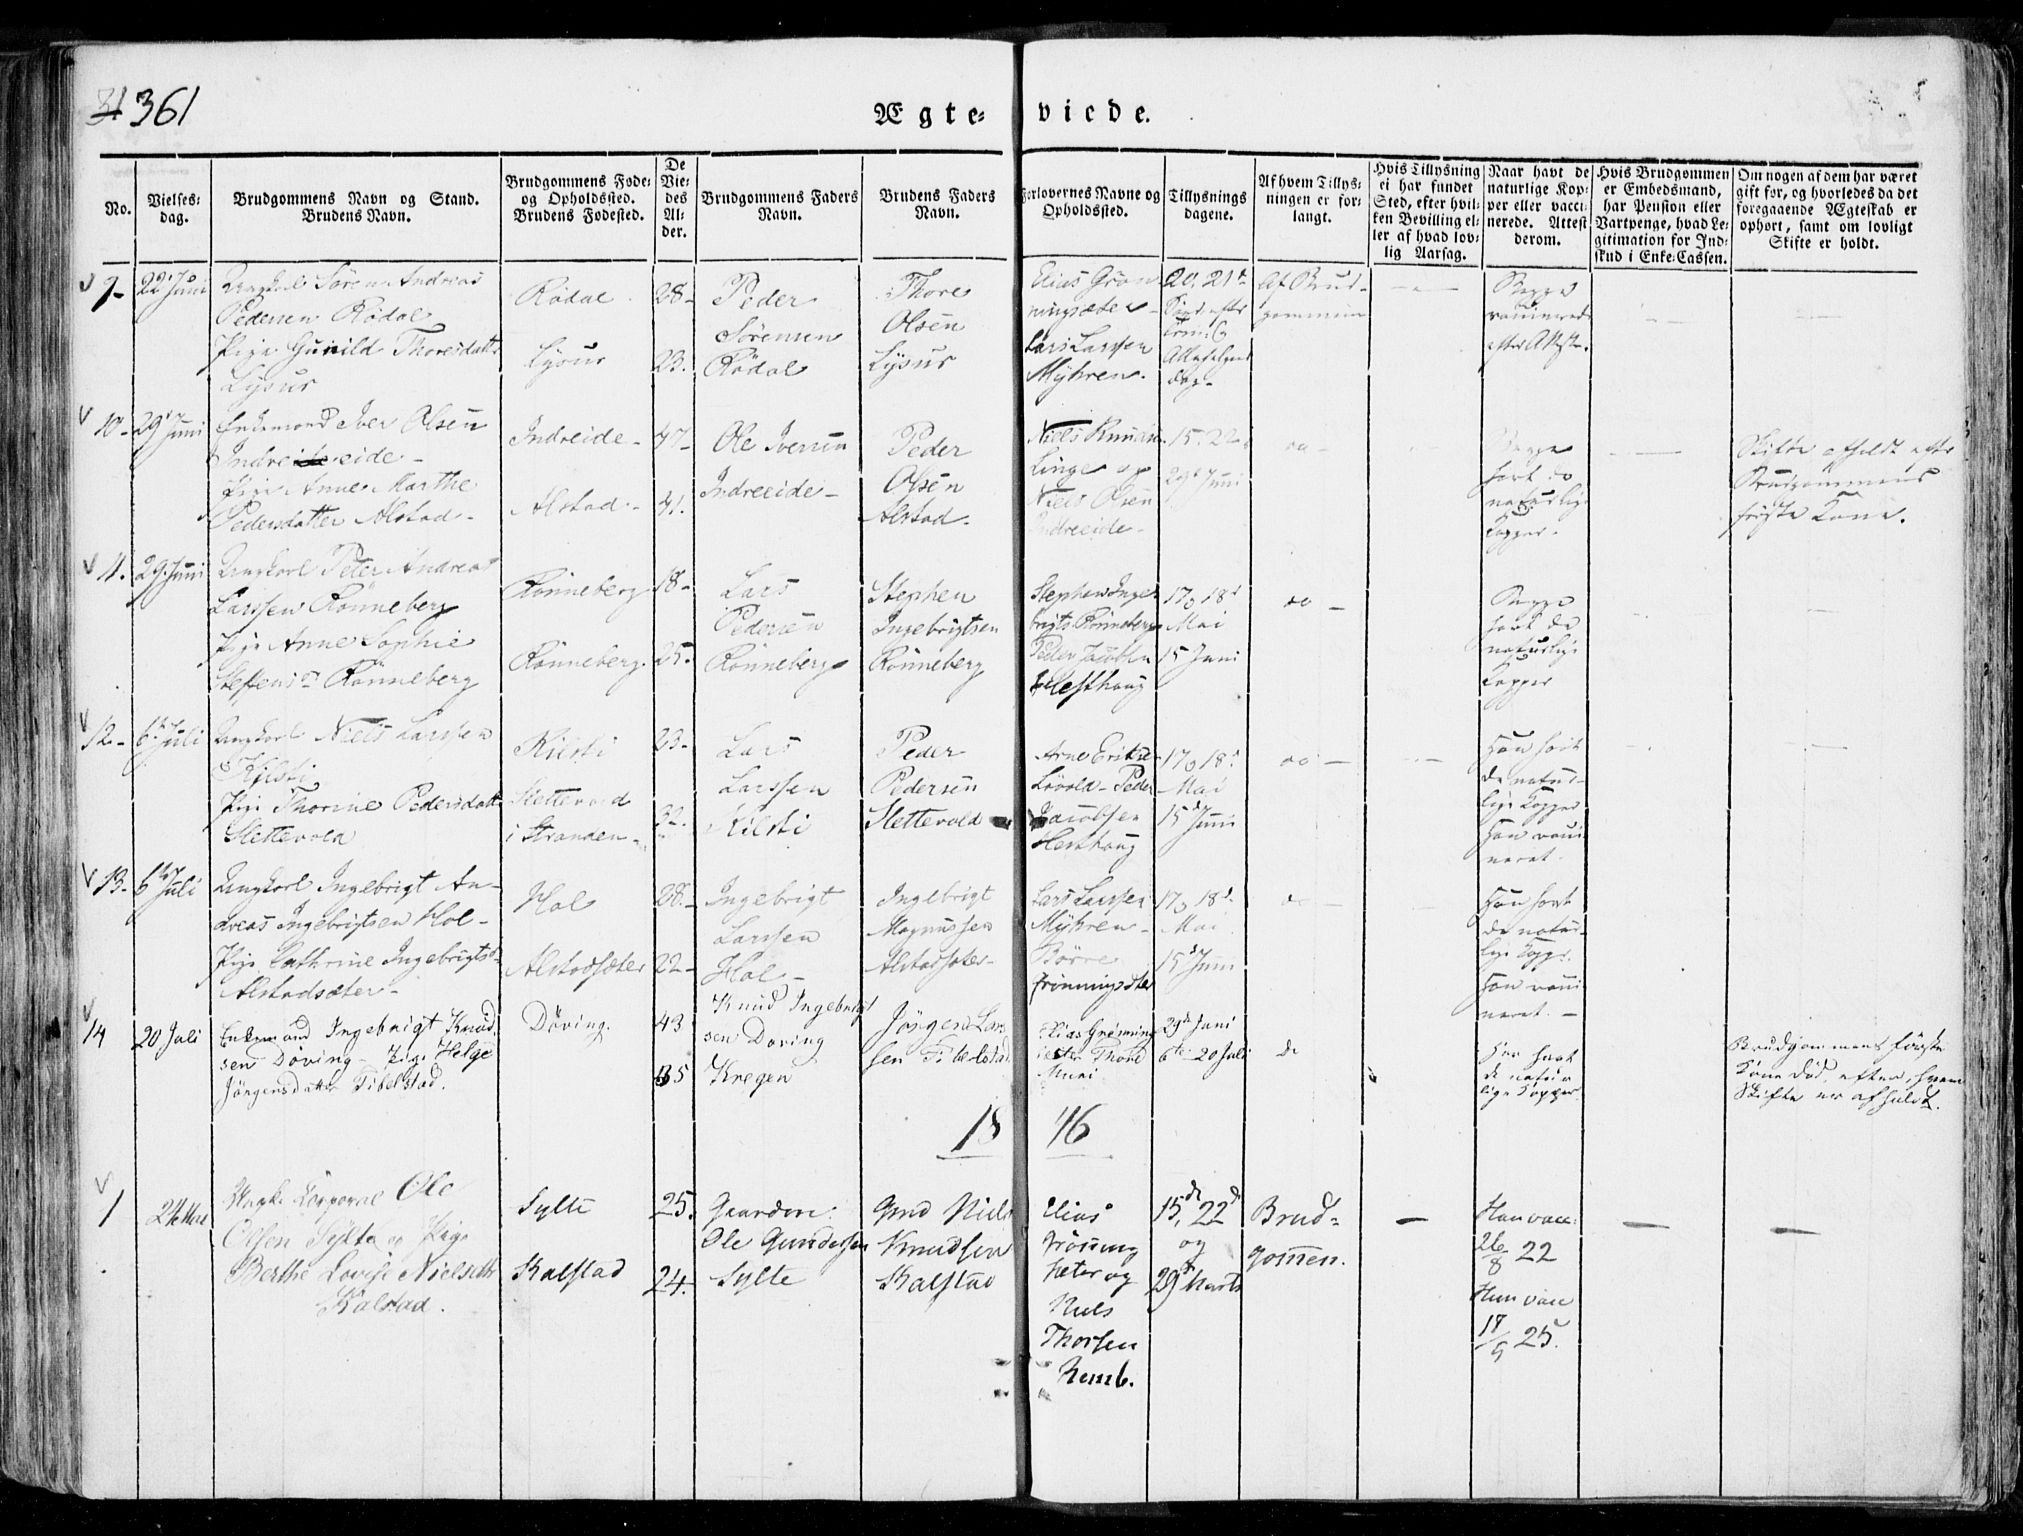 361
Ægte- viede.
No.
Vielses-
dag.
Brudgommens Navn og Stand.
Brudens Navn.
Brudgommens Føde-
og Opholdssted.
Brudens Fødested.
De
Vie-
des
Al-
der.
Brudgommens Faders
Navn.
Brudens Faders
Navn.
Forlovernes Navne og
Opholdssted.
Tillysnings
dagene.
Af hvem Tillys-
ningen er for-
langt.
Hvis Tillysning
ei har fundet
Sted, efter hvil-
ken Bevilling el-
ler af hvad lov-
lig Aarsag.
Naar havt de
naturlige Kop-
per eller vacci-
nerede. Attest
derom.
Hvis Brudgommen
er Embedsmand,
har Pension eller
Vartpenge, hvad Le-
gitimation for Ind-
skud i Enke-Cassen.
Om nogen af dem har været
gift før, og hvorledes da det
foregaaende Ægteskab er
ophørt, samt om lovligt
Skifte er holdt.
9-
22 Juni
Ungkarl Sören Andreas
Pedersen Rödal
Pige Gunild Thoresdatter
Lysur
Rödal
Lysur
28-
23.
Peder
Sörensen
Rödal
Thore
Olsen
Lysur
Elias Grön-
ningsæter-
Lars Larssen
Myhren.
20, 21
Af Brud-
gommen
Begge
vaccinerede
efter Attest.
10-
29 Juni
Enkemand Iver Olsen
Indreeide-
Pige Anne Marthe
Pedersdatter Alstad-
Indreide-
Alstad-
47-
41.
Ole Iversen
Indreeide-
Peder
Olsen
Alstad.
Niels Knudsen
Linge og
Niels Olsen
Indreeide-
15. 22
29 Juni
do-
Begge
havt de
naturlige
Kopper.
Skifte afholdt efter
Brudgommens
første Kone.
11.
29 Juni
Ungkarl Peter Andreas
Larssen Rönneberg
Pige Anne Sophie
Steffensd Rönneberg
Rönneberg
Rönneberg.
18-
25.
Lars
Pedersen
Rönneberg
Stephen
Ingebrigtsen
Rönneberg
Stephen Inge-
brigts Rönneberg
Peder Jacobsen
Hesthaug
17, 18
Mai
15 Juni
do-
Begge
havt de
naturlige
Kopper
12-
6 Juli
Ungkarl Niels Larssen
Kilsti
Pige Thorine Pedersdatt
Slettevold
Kilsti
Slettevold
i Stranden-
23-
32.
Lars
Larssen
Kilsti
Peder
Pedersen
Slettevold
Arne Eriks
Lövold- Peder
Jacobsen
Hesthaug
17, 18
Mai
15 Juni
do-
Han havt
de natur-
lige Kopper
Hun vacci
neret.
13-
6 Juli
Ungkarl Ingebrigt An-
dreas Ingebrigtsen Hol-
Pige Cathrine Ingebrigtsd-
Alstadsæter-
Hol
Alstadsæter
28-
22-
Ingebrigt
Larssen
Hol-
Ingebrigt
Magnussen
Alstadsæter-
Lars Larssen
Myhren-
Börre
Grönningsæter
17, 18
Mai
15 Juni
do-
Han havt
de natur-
lige Kopper.
Hun vacci
neret.-
14
20 Juli
Enkemand Ingebrigt Knud-
sen Döving- Pige Helge
Jörgensdatter Fibelstad.
Döving.
43
35
Knud Ingebrigt
sen Döving
Kregen
Jörgen Lar-
sen Fibelstad
Elias Grönning
29 Juni
6te 20 Juli
do
Har havt
de natur
lige Kopper
Brudgommens første
Kone død, efter hvem
Skifte er afholdt.
18 46
1
Ungk. Corporal Ole
Olsen Sylte og Pige
Berthe Lovise Nielsdtr
Kalstad.
Sylte
Kalstad
25.
24.
Gaardm.
Ole Gundersen
Sylte
Gmd Niels
Knudsen
Kalstad
Elias
Grönning
sæter og
Niels
Thorsen
15, 22
og
29 Marts
Brud-
gommen.
Han vacc.
26/8 22
Hun vacc
18/9 25.